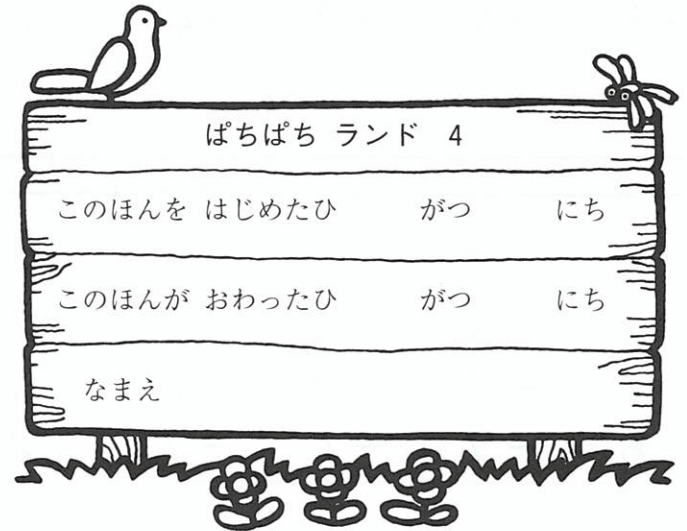 ぱちぱち ランド 4
このほんを はじめたひ がつ にち
このほんが おわったひ がつ にち
なまえ